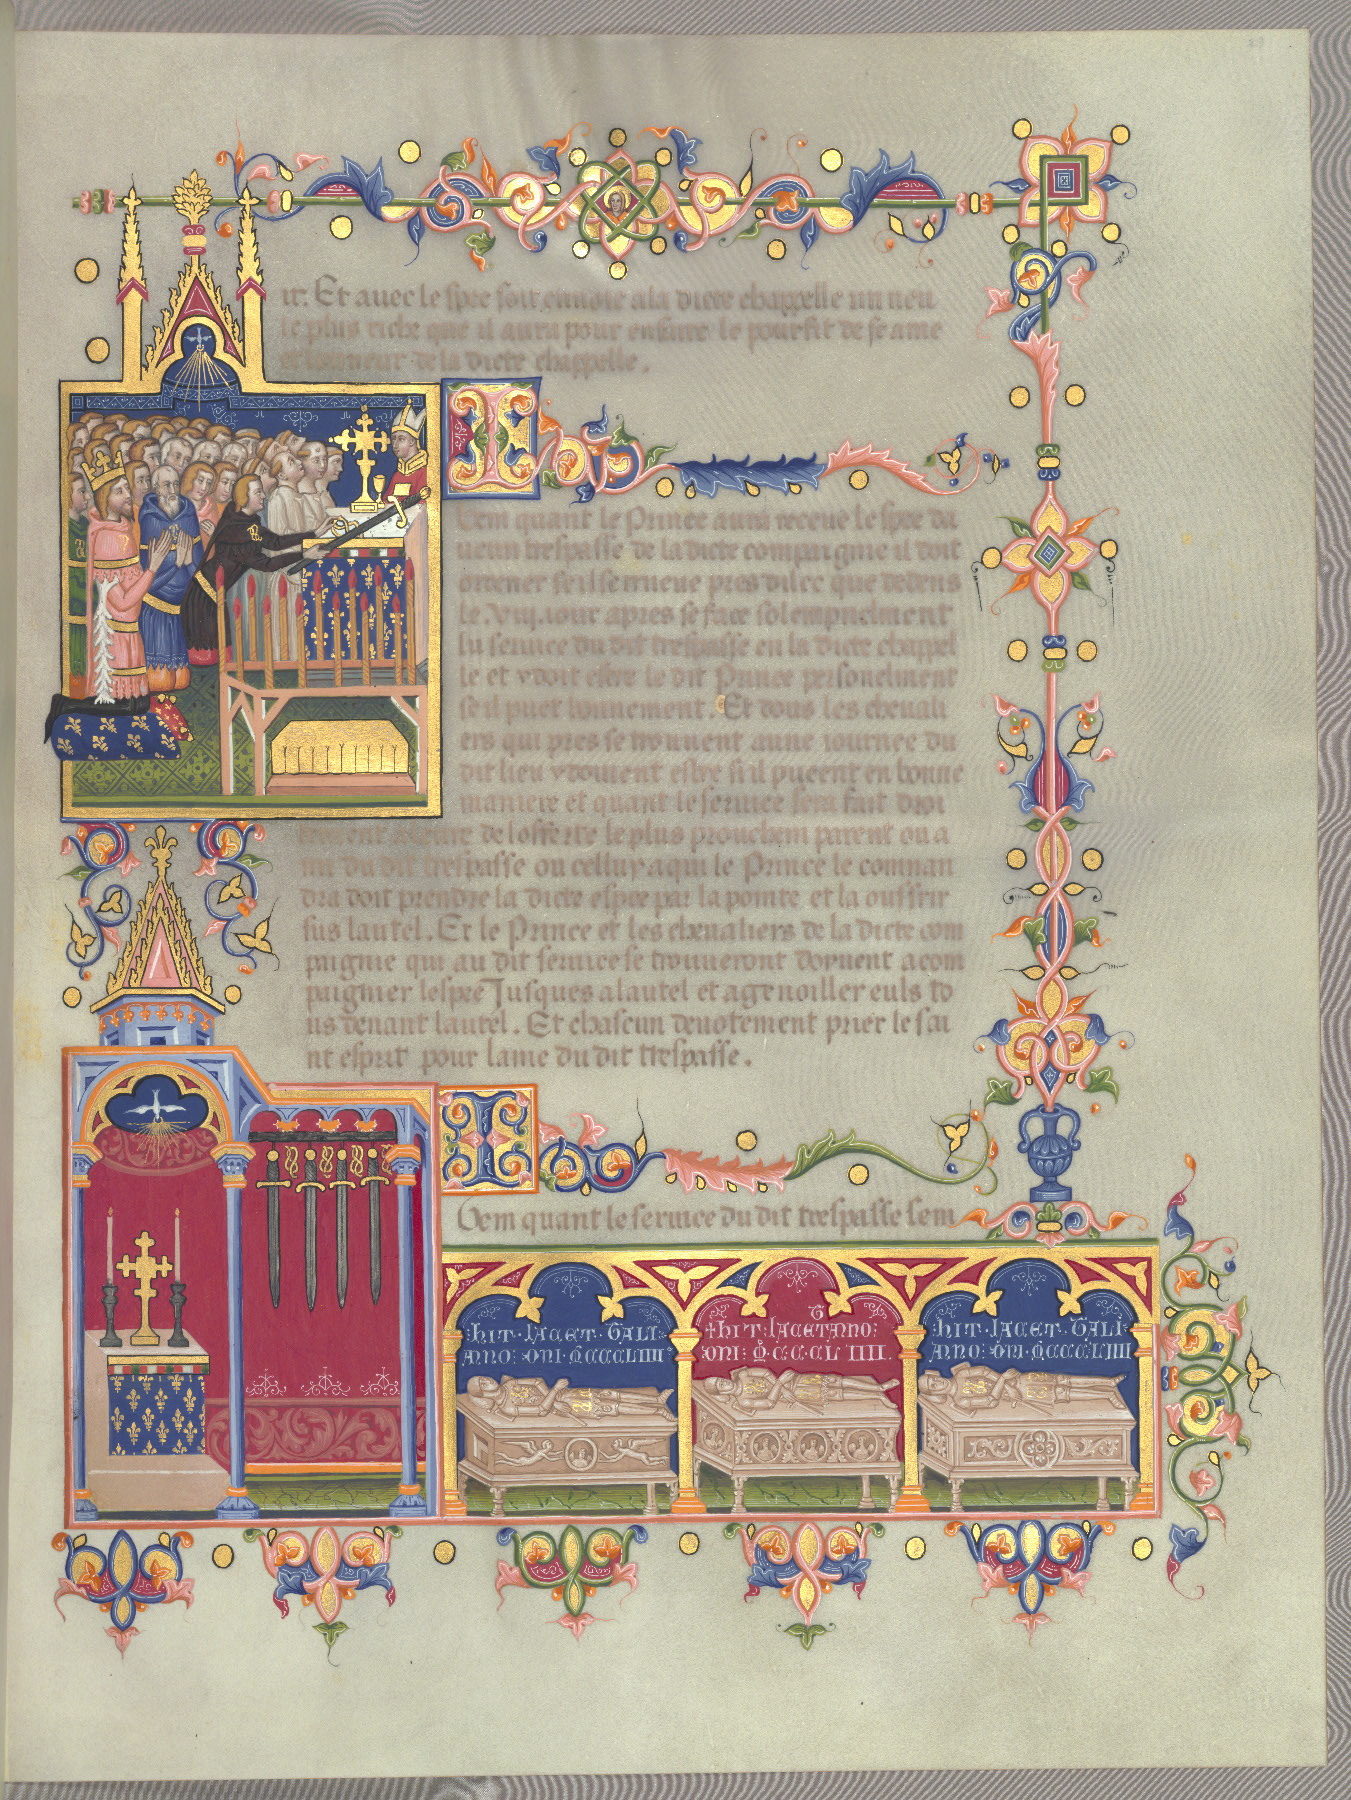 ir. Et avec le spee soit envoie a la dicte chappelle un neu
le plus riche que il aura pour ensuire le pourfit de se ame
et lonneur de la dicte chappelle.
Item quant le Prince aura receue le spee du
trespasse de la dicte compaignie il doit
ordener se il se trueve pres dilec que dedens
le .viij. jour apres se face solempnelment
lu service du dit trespasse en la dicte chappel
le et y doit estre le dit Prince personelment
se il puet bonnement. Et tous les chevali
ers qui pres se trouvent a une journee du
dit lieu y doivent estre si il pueent en bonne
maniere et quant le service sera fait droi
tement a leure de lofferte le plus prouchein parent ou a
mi du dit trespasse ou celluy a qui le Prince le comman
dra doit prendre la dicte espee par la pointe et la ouffrir
sus lautel. Et le Prince et les chevaliers de la dicte com
paignie qui au dit service se trouveront doyvent acom
paignier lespee Jusques a lautel et agenoiller euls to
us devant lautel. Et chascun devotement prier le sai
nt esprit pour lame du dit trespasse.
Item quant le service du dit trespasse sera
HIT · JACET · TALI:
ANNO: DNI · MCCCCLIIII
†HIT: JACET ANNO:
DNI: M C C C L IIII.
HIT · JACET · TALI
ANNO: DNI · MCCCC LIIII